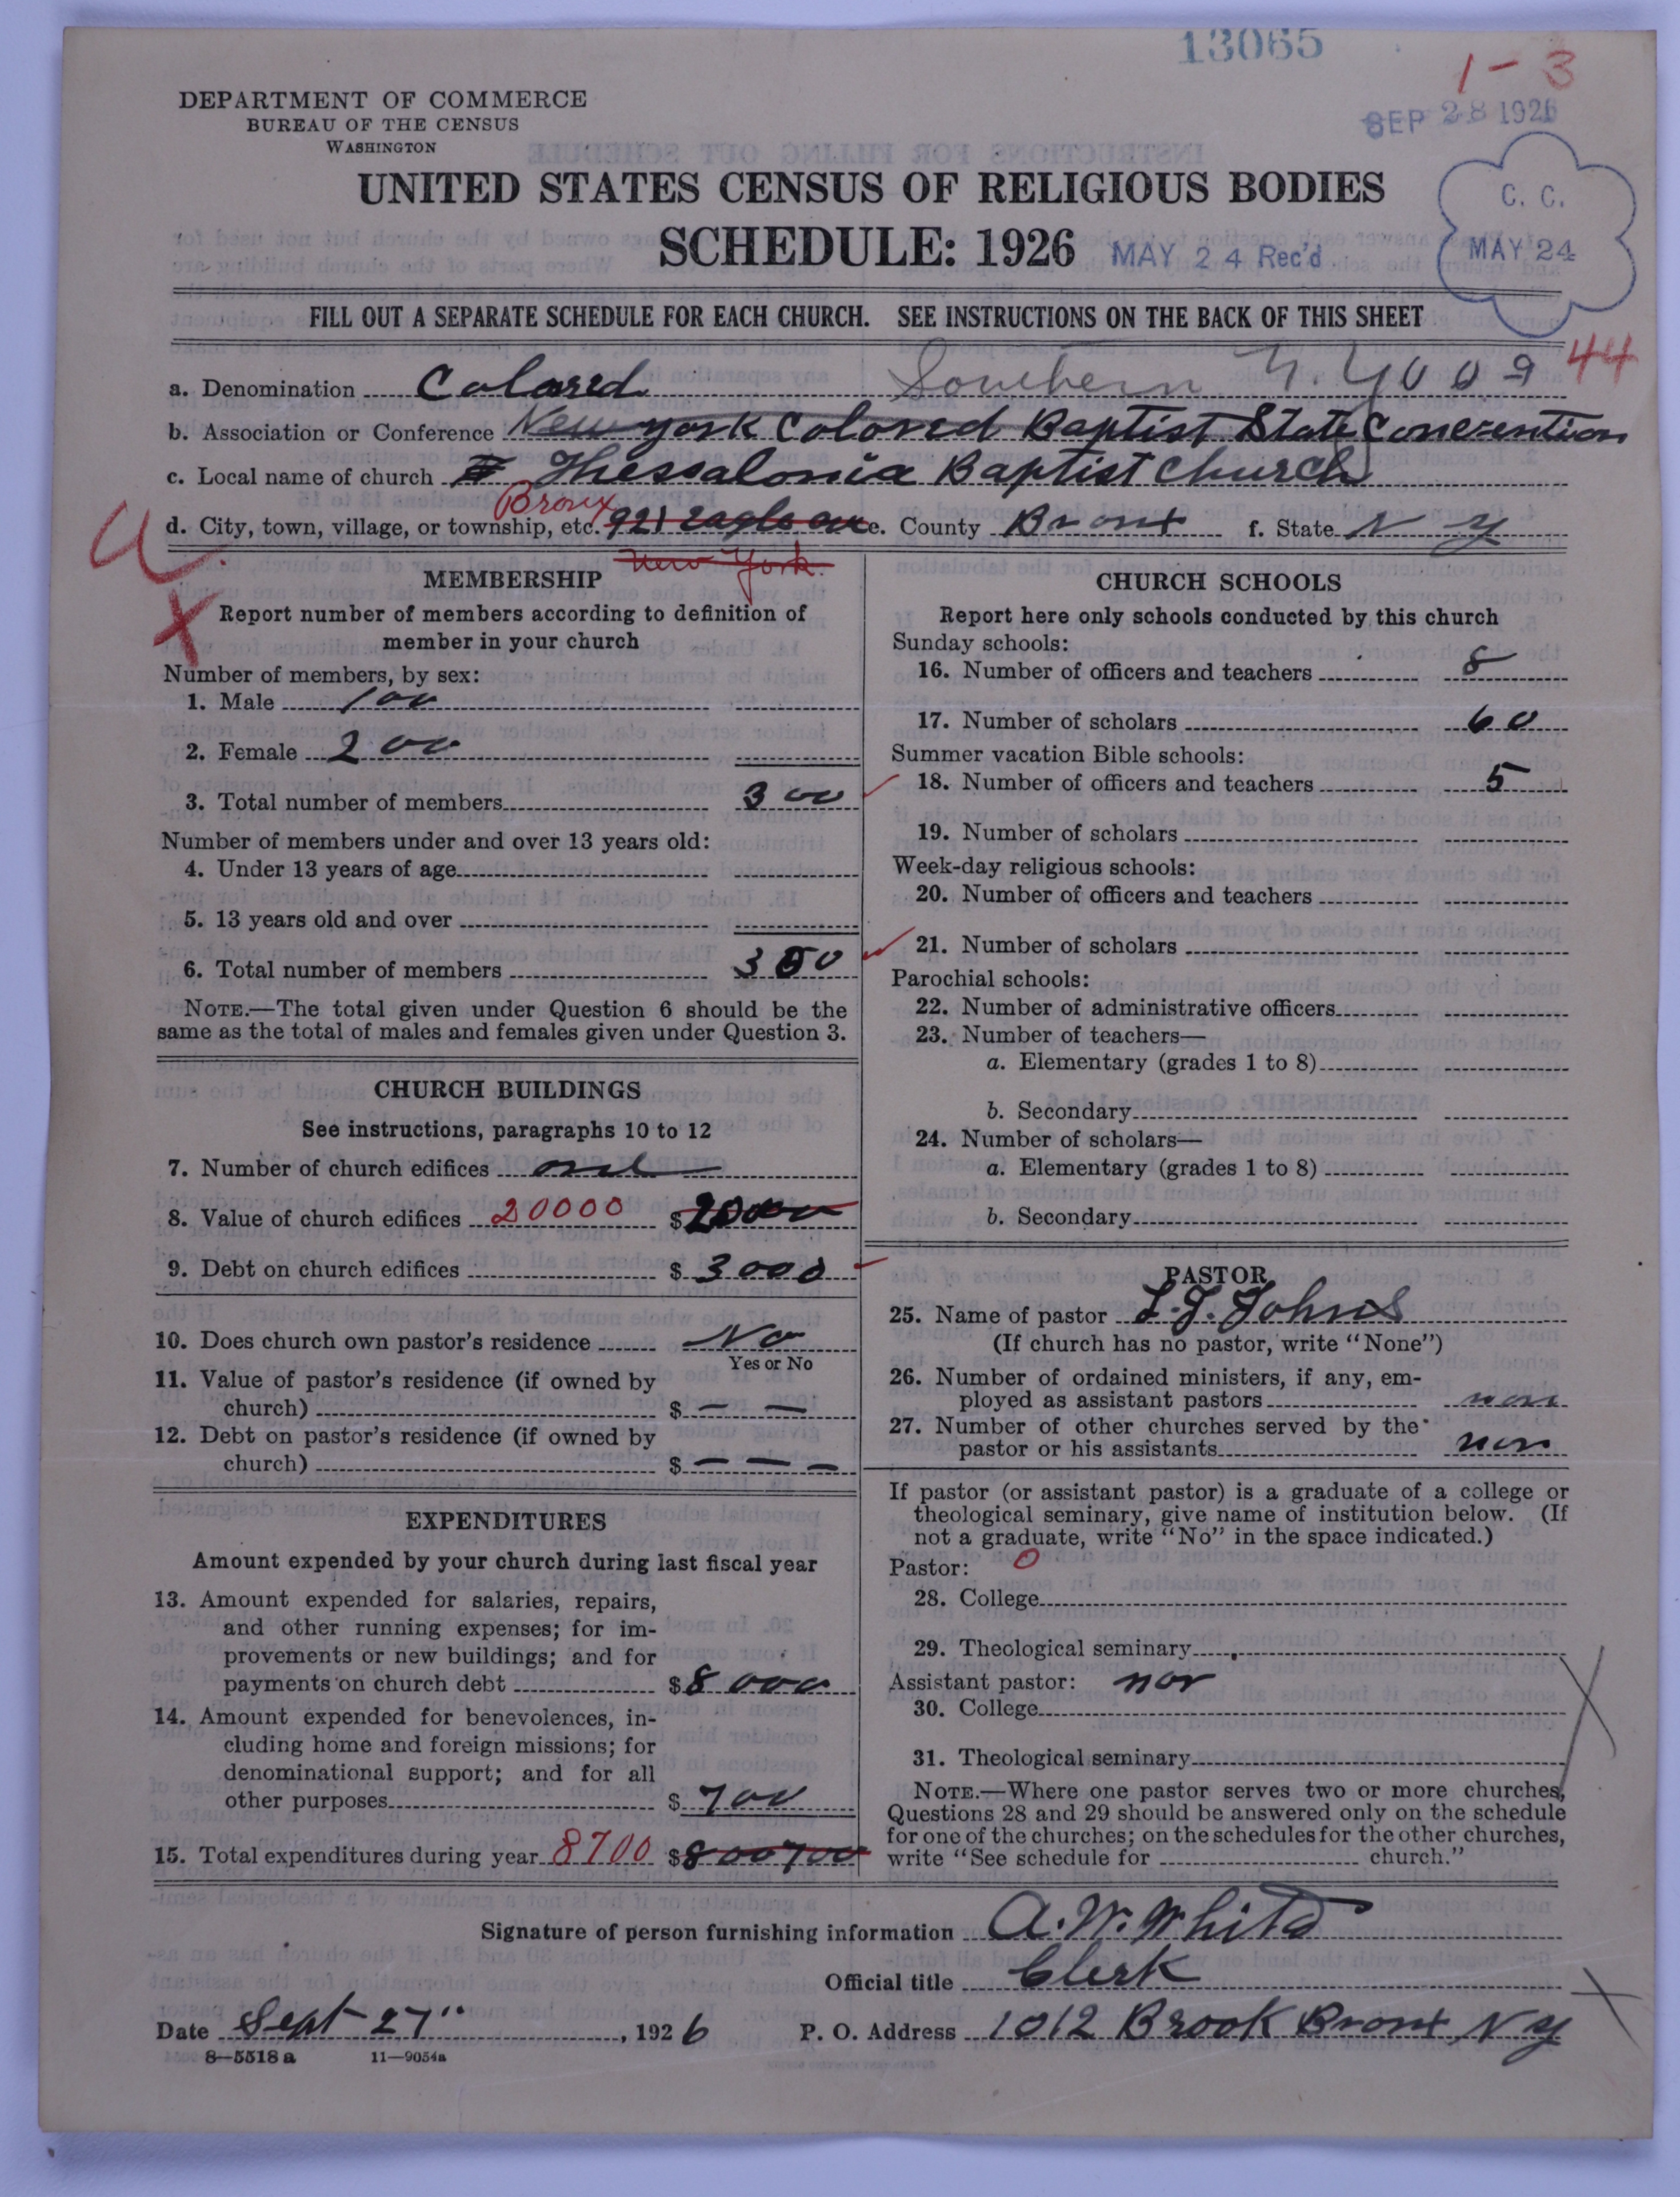 13065
1-3
DEPARTMENT OF COMMERCE
BUREAU OF THE CENSUS
WASHINGTON
SEP 28 1926
UNITED STATES CENSUS OF RELIGIOUS BODIES
SCHEDULE: 1926
MAY 24 Rec'd
C. C.
MAY 24
FILL OUT A SEPARATE SCHEDULE FOR EACH CHURCH. SEE INSTRUCTIONS ON THE BACK OF THIS SHEET
44
a. Denomination Colored Southern N.Y
b. Association or Conference New York Colored Baptist State Convention
c. Local name of church Thessalonia Baptist Church
d. City, town, village, or township, etc. Bronx 921 Eagle ave e. County Bronx f. State N Y
New York
MEMBERSHIP
Report number of members according to definition of
member in your church
Number of members, by sex:
1. Male 100
2. Female 200
3. Total number of members 300
Number of members under and over 13 years old:
4. Under 13 years of age
5. 13 years old and over
6. Total number of members 300
NOTE.—The total given under Question 6 should be the
same as the total of males and females given under Question 3.
CHURCH BUILDINGS
See instructions, paragraphs 10 to 12
7. Number of church edifices one
8. Value of church edifices 20000 $
9. Debt on church edifices $ 3000
10. Does church own pastor's residence No
Yes or No
11. Value of pastor's residence (if owned by
church) $ — —
12. Debt on pastor's residence (if owned by
church) $ — — —
EXPENDITURES
Amount expended by your church during last fiscal year
13. Amount expended for salaries, repairs,
and other running expenses; for im-
provements or new buildings; and for
payments on church debt $ 8000
14. Amount expended for benevolences, in-
cluding home and foreign missions; for
denominational support; and for all
other purposes $ 700
15. Total expenditures during year 8700 $ 800700
CHURCH SCHOOLS
Report here only schools conducted by this church
Sunday schools:
16. Number of officers and teachers 8
17. Number of scholars 60
Summer vacation Bible schools:
18. Number of officers and teachers 5
19. Number of scholars
Week-day religious schools:
20. Number of officers and teachers
21. Number of scholars
Parochial schools:
22. Number of administrative officers
23. Number of teachers—
a. Elementary (grades 1 to 8)
b. Secondary
24. Number of scholars—
a. Elementary (grades 1 to 8)
b. Secondary
PASTOR
25. Name of pastor L. J. Johns
(If church has no pastor, write "None")
26. Number of ordained ministers, if any, em-
ployed as assistant pastors non
27. Number of other churches served by the
pastor or his assistants non
If pastor (or assistant pastor) is a graduate of a college or
theological seminary, give name of institution below. (If
not a graduate, write "No" in the space indicated.)
Pastor: 0
28. College
29. Theological seminary
Assistant pastor: non
30. College
31. Theological seminary
NOTE.—Where one pastor serves two or more churches,
Questions 28 and 29 should be answered only on the schedule
for one of the churches; on the schedules for the other churches,
write "See schedule for church."
Signature of person furnishing information A. W. White
Official title Clerk
Date Sept 27", 1926 P. O. Address 1012 Brook Bronx N Y
8—5518 a 11—9054a